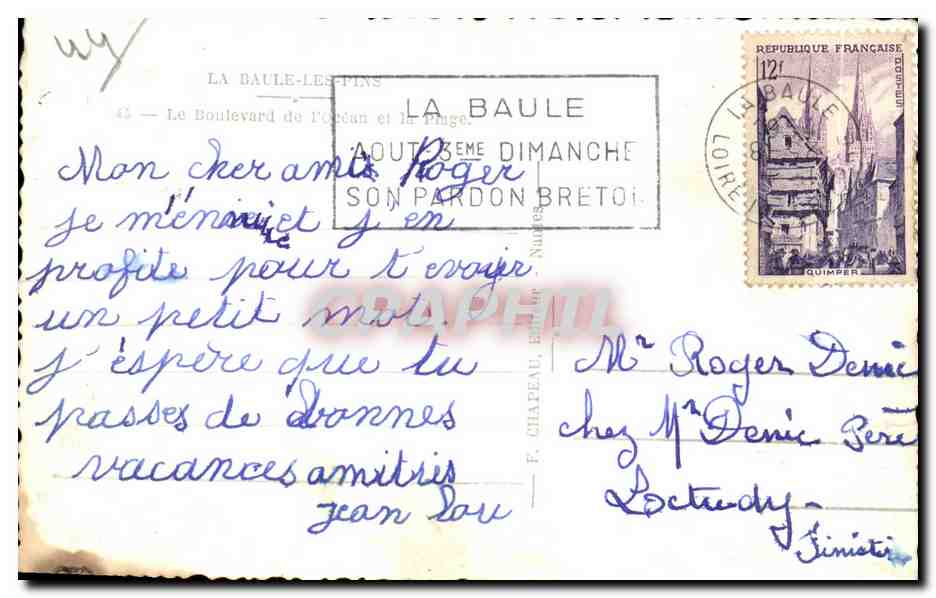 44
LA BAULE-LES-PINS
45 — Le Boulevard de l'Océan et la Plage.
LA BAULE
AOUT 3EME DIMANCHE
SON PARDON BRETON
RÉPUBLIQUE FRANÇAISE
12f
POSTES
QUIMPER
LA BAULE
LOIRE
Mon cher ami Roger
je m'énnuie et j'en
profite pour t'evoyer
un petit mot.
j'éspère que tu
passes de bonnes
vacances amitiés
jean lou
F. CHAPEAU, Editeur, Nantes
CPAPHIL
Mr Roger Denic
chez Mr Denic Père
Loctudy-
Finistè